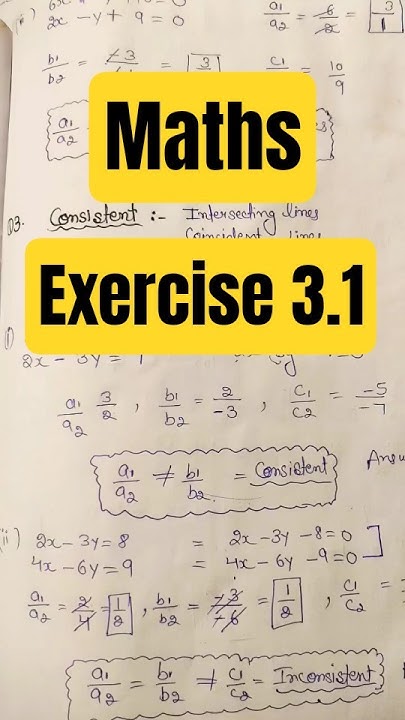 2x - y + 9 = 0
a1/a2 = 6/2 = 3/1
b1/b2 = -3/ = 3/ 10/9
a1/a2
Maths
Q3. Consistent :- Intersecting lines
Coincident lines
Exercise 3.1
(i)
2x - 3y = 7
a1/a2 3/2 , b1/b2 = 2/-3 , c1/c2 = -5/-7
a1/a2 ≠ b1/b2 = Consistent
(ii) 2x - 3y = 8 = 2x - 3y - 8 = 0
4x - 6y = 9 = 4x - 6y - 9 = 0
a1/a2 = 2/4 = 1/2 , b1/b2 = -3/-6 = 1/2 , c1/c2 =
a1/a2 = b1/b2 ≠ c1/c2 = Inconsistent